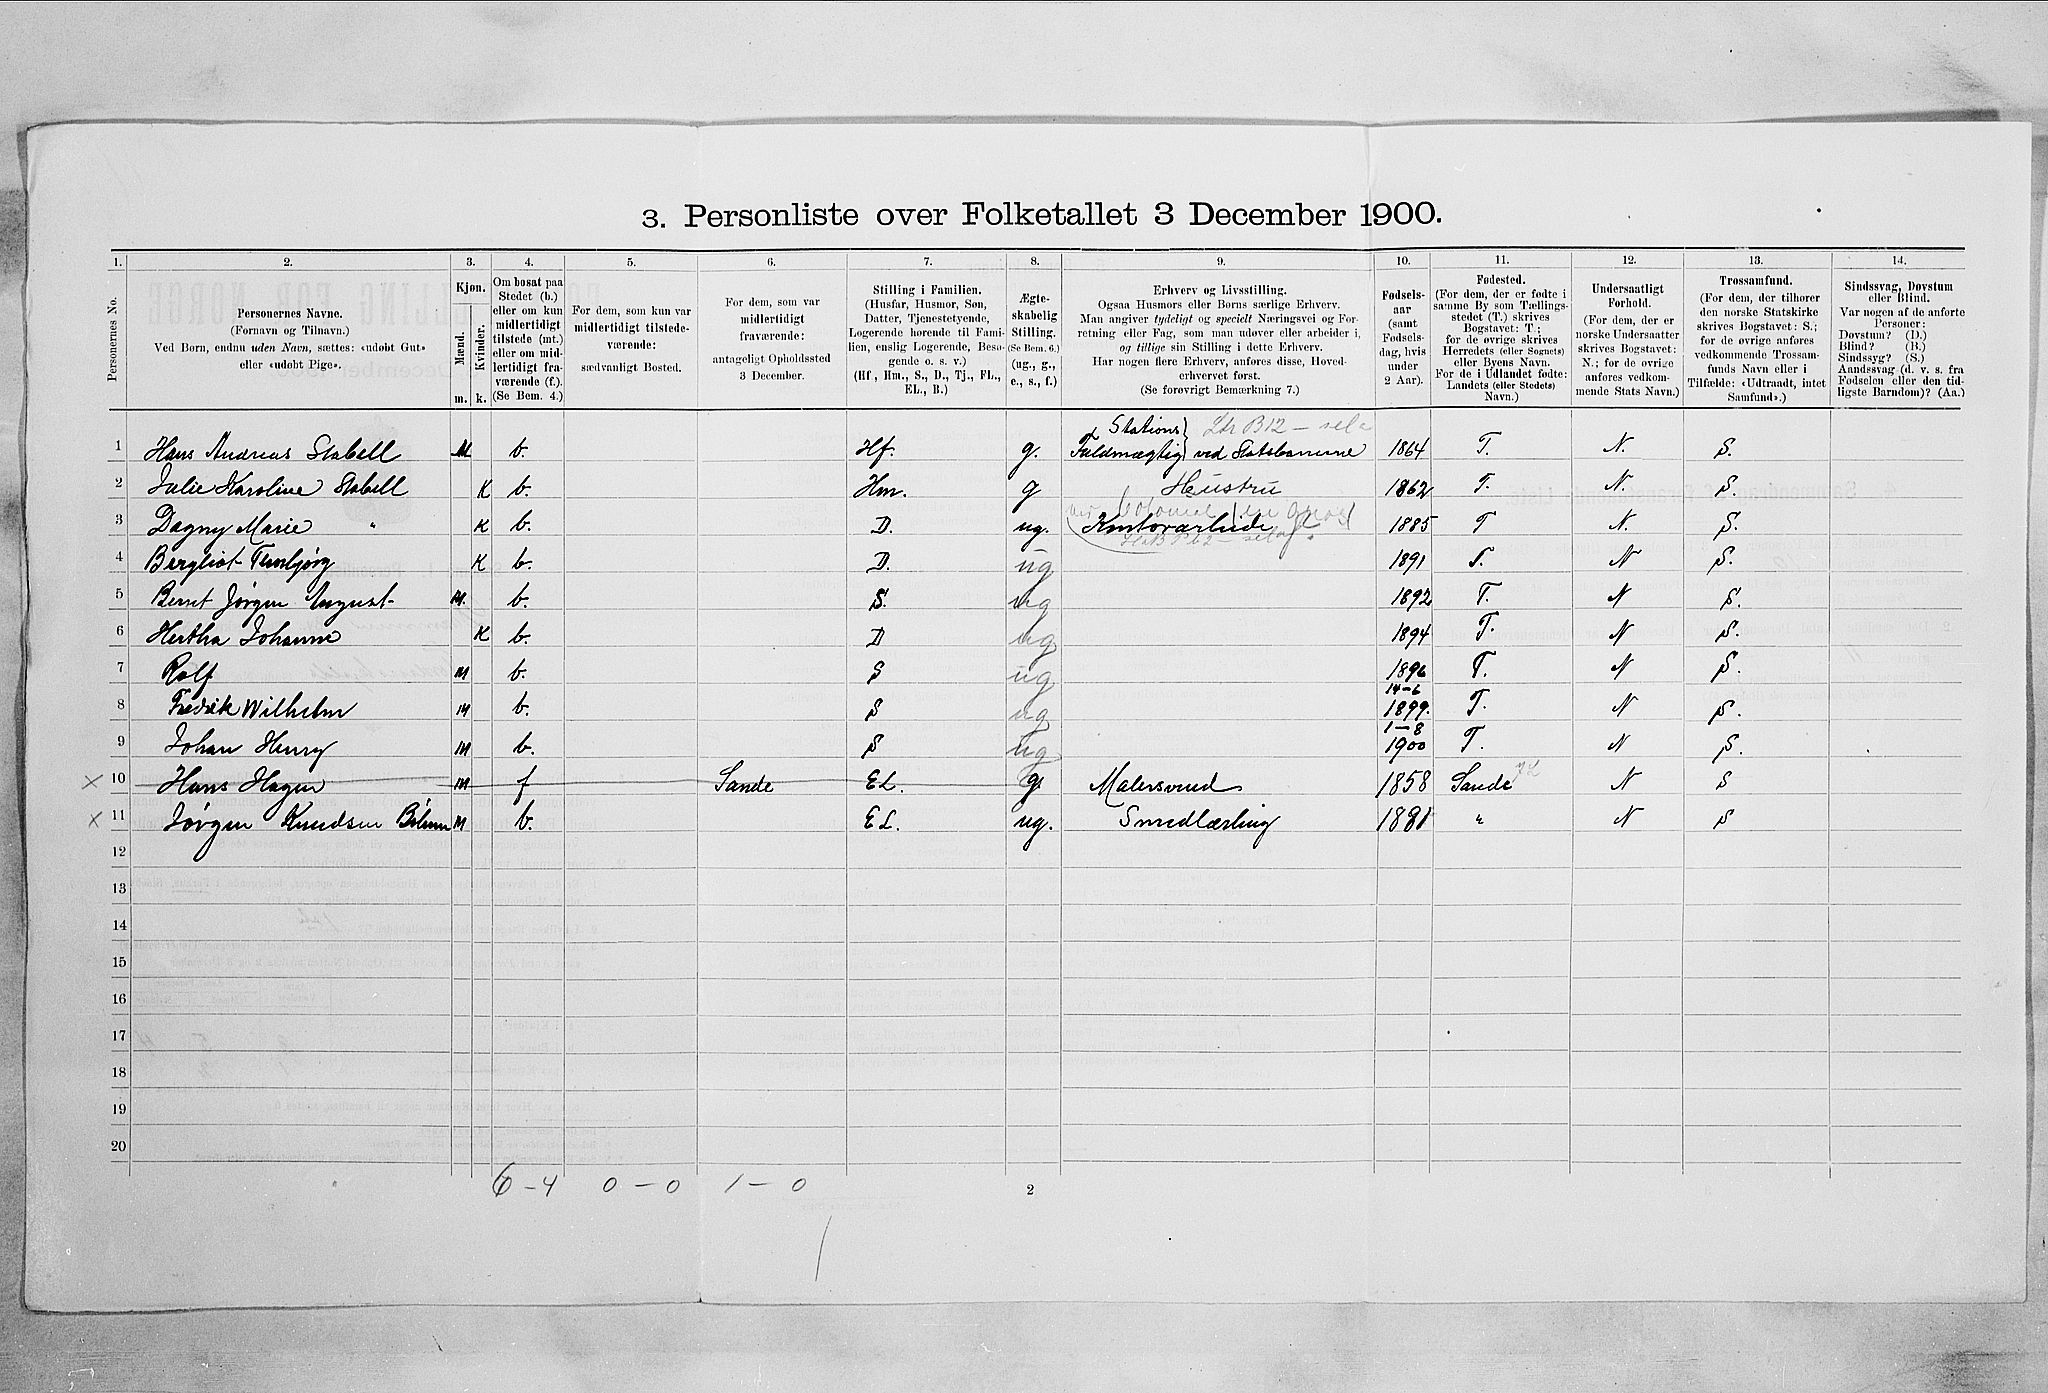 3. Personliste over Folketallet 3 December 1900.
1. 2. 3. 4. 5. 6. 7. 8. 9. 10. 11. 12. 13. 14.
Personernes No.
Personernes Navne.
(Fornavn og Tilnavn.)
Ved Børn, endnu uden Navn, sættes: «udøbt Gut»
eller «udøbt Pige».
Kjøn.
Mænd.
Kvinder.
m. k.
Om bosat paa
Stedet (b.)
eller om kun
midlertidigt
tilstede (mt.)
eller om mid-
lertidigt fra-
værende (f.).
(Se Bem. 4.)
For dem, som kun var
midlertidigt tilstede-
værende:
sædvanligt Bosted.
For dem, som var
midlertidigt
fraværende:
antageligt Opholdssted
3 December.
Stilling i Familien.
(Husfar, Husmor, Søn,
Datter, Tjenestetyende,
Logerende hørende til Fami-
lien, enslig Logerende, Besø-
gende o. s. v.)
(Hf, Hm., S., D., Tj., FL.,
EL., B.)
Ægte-
skabelig
Stilling.
(Se Bem. 6.)
(ug., g.,
e., s., f.)
Erhverv og Livsstilling.
Ogsaa Husmors eller Børns særlige Erhverv.
Man angiver tydeligt og specielt Næringsvei og For-
retning eller Fag, som man udøver eller arbeider i,
og tillige sin Stilling i dette Erhverv.
Har nogen flere Erhverv, anføres disse, Hoved-
erhvervet først.
(Se forøvrigt Bemærkning 7.)
Fødsels-
aar
(samt
Fødsels-
dag, hvis
under
2 Aar).
Fødested.
(For dem, der er fødte i
samme By som Tællings-
stedet (T.) skrives
Bogstavet: T.;
for de øvrige skrives
Herredets (eller Sognets)
eller Byens Navn.
For de i Udlandet fødte:
Landets (eller Stedets)
Navn.)
Undersaatligt
Forhold.
(For dem, der er
norske Undersaatter
skrives Bogstavet:
N.; for de øvrige
anføres vedkom-
mende Stats Navn.)
Trossamfund.
(For dem, der tilhører
den norske Statskirke
skrives Bogstavet: S.;
for de øvrige anføres
vedkommende Trossam-
funds Navn eller i
Tilfælde: «Udtraadt, intet
Samfund».)
Sindssvag, Døvstum
eller Blind.
Var nogen af de anførte
Personer:
Døvstum? (D.)
Blind? (B.)
Sindssyg? (S.)
Aandssvag (d. v. s. fra
Fødselen eller den tid-
ligste Barndom)? (Aa.)
Stations Ltr B12
1 Hans Andreas Stabell M b. Hf. g. Fuldmægtig ved Statsbanerne 1864 T. N. S.
2 Julie Karoline Stabell K b. Hm. g Hustru 1862 T. N. S.
3 Dagny Marie " K b. D. ug. Kontorarbeide 1885 T N. S.
4 Bergliot K b. D. ug 1891 T. N S.
5 Bernt Jørgen August M. b. S. ug 1892 T. N S.
6 Hertha Johanne K b. D ug 1894 T. N S.
7 Rolf M b. S ug 1896 T. N S.
14-6
8 Fredrik Wilhelm M b. S ug 1899. T. N S.
1-8
9 Johan Henry M b. S ug 1900 T. N S.
x 10 Hans Hagen M f Sande EL. g. Malersvend 1858 Sande N S
x 11 Jørgen Knudsen M b. EL. ug. Smedlærling 1881 " N S
12
13
14
15
16
17
18
19
20
6 – 4 0 – 0 1 – 0
2